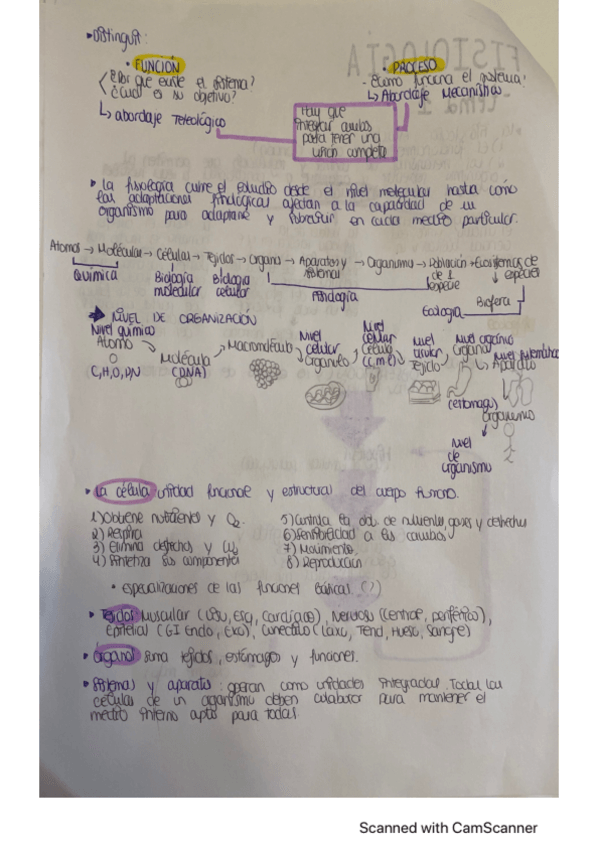 Distinguir:
• FUNCIÓN
¿Por qué existe el sistema?
¿cuál es su objetivo?
↳ abordaje Teleológico
• PROCESO
- ¿cómo funciona el sistema?
↳ Abordaje Mecanista
Hay que
integrar ambos
para tener una
visión completa
FISIOLOGÍA
La fisiología cubre el estudio desde el nivel molecular hasta cómo
las adaptaciones fisiológicas afectan a la capacidad de un
organismo para adaptarse y sobrevivir en cada medio particular.
Atomos → Molécular → Células → Tejidos → Organo → Aparatos y sistemas → Organismo → Población de 1 especie → Ecosistemas de especies
Química
Biología molecular
Biología celular
Fisiología
Ecología
Biosfera
NIVEL DE ORGANIZACIÓN
Nivel químico
Atomo
C, H, O, P, N
Molécula
(DNA)
Macromolécula
Nivel celular
Organulo
Nivel celular
Célula
Nivel tisular
Tejido
Nivel orgánico
Organo
(estomago)
Nivel
Aparato
Organismo
Nivel
de
organismo
• La célula unidad funcional y estructural del cuerpo
1) Obtiene nutrientes y O₂.
2) Respira
3) Elimina desechos y CO₂
4) Sintetiza sus componentes
5) Controla la de nutrientes, gases y desechos
6) Sensibilidad a los cambios
7) Movimiento.
8) Reproducción
• especializaciones de las funciones básicas. (?)
• Tejidos Muscular (Liso, Esq, Cardíaco), Nervioso (Central, periférico),
Epitelial (GI Endo, Exo), Conectivo (Laxo, Tend, Hueso, Sangre)
• Órganos suma tejidos, estómagos y funciones.
• Sistemas y aparatos: operan como unidades integradas. Todas las
células de un organismo deben colaborar para mantener el
medio interno apto para todas.
Scanned with CamScanner